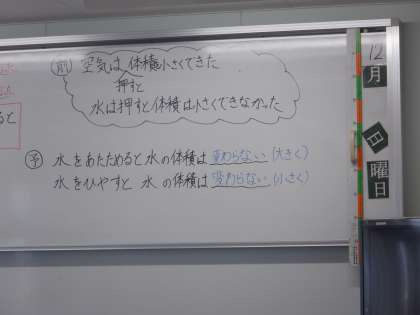 前 空気は体積を小さくできた
押すと
水は押すと体積は小さくできなかった
予 水をあたためると水の体積は変わらない(大きく)
水をひやすと 水の体積は変わらない(小さく)
ると
12
月
日
曜
日